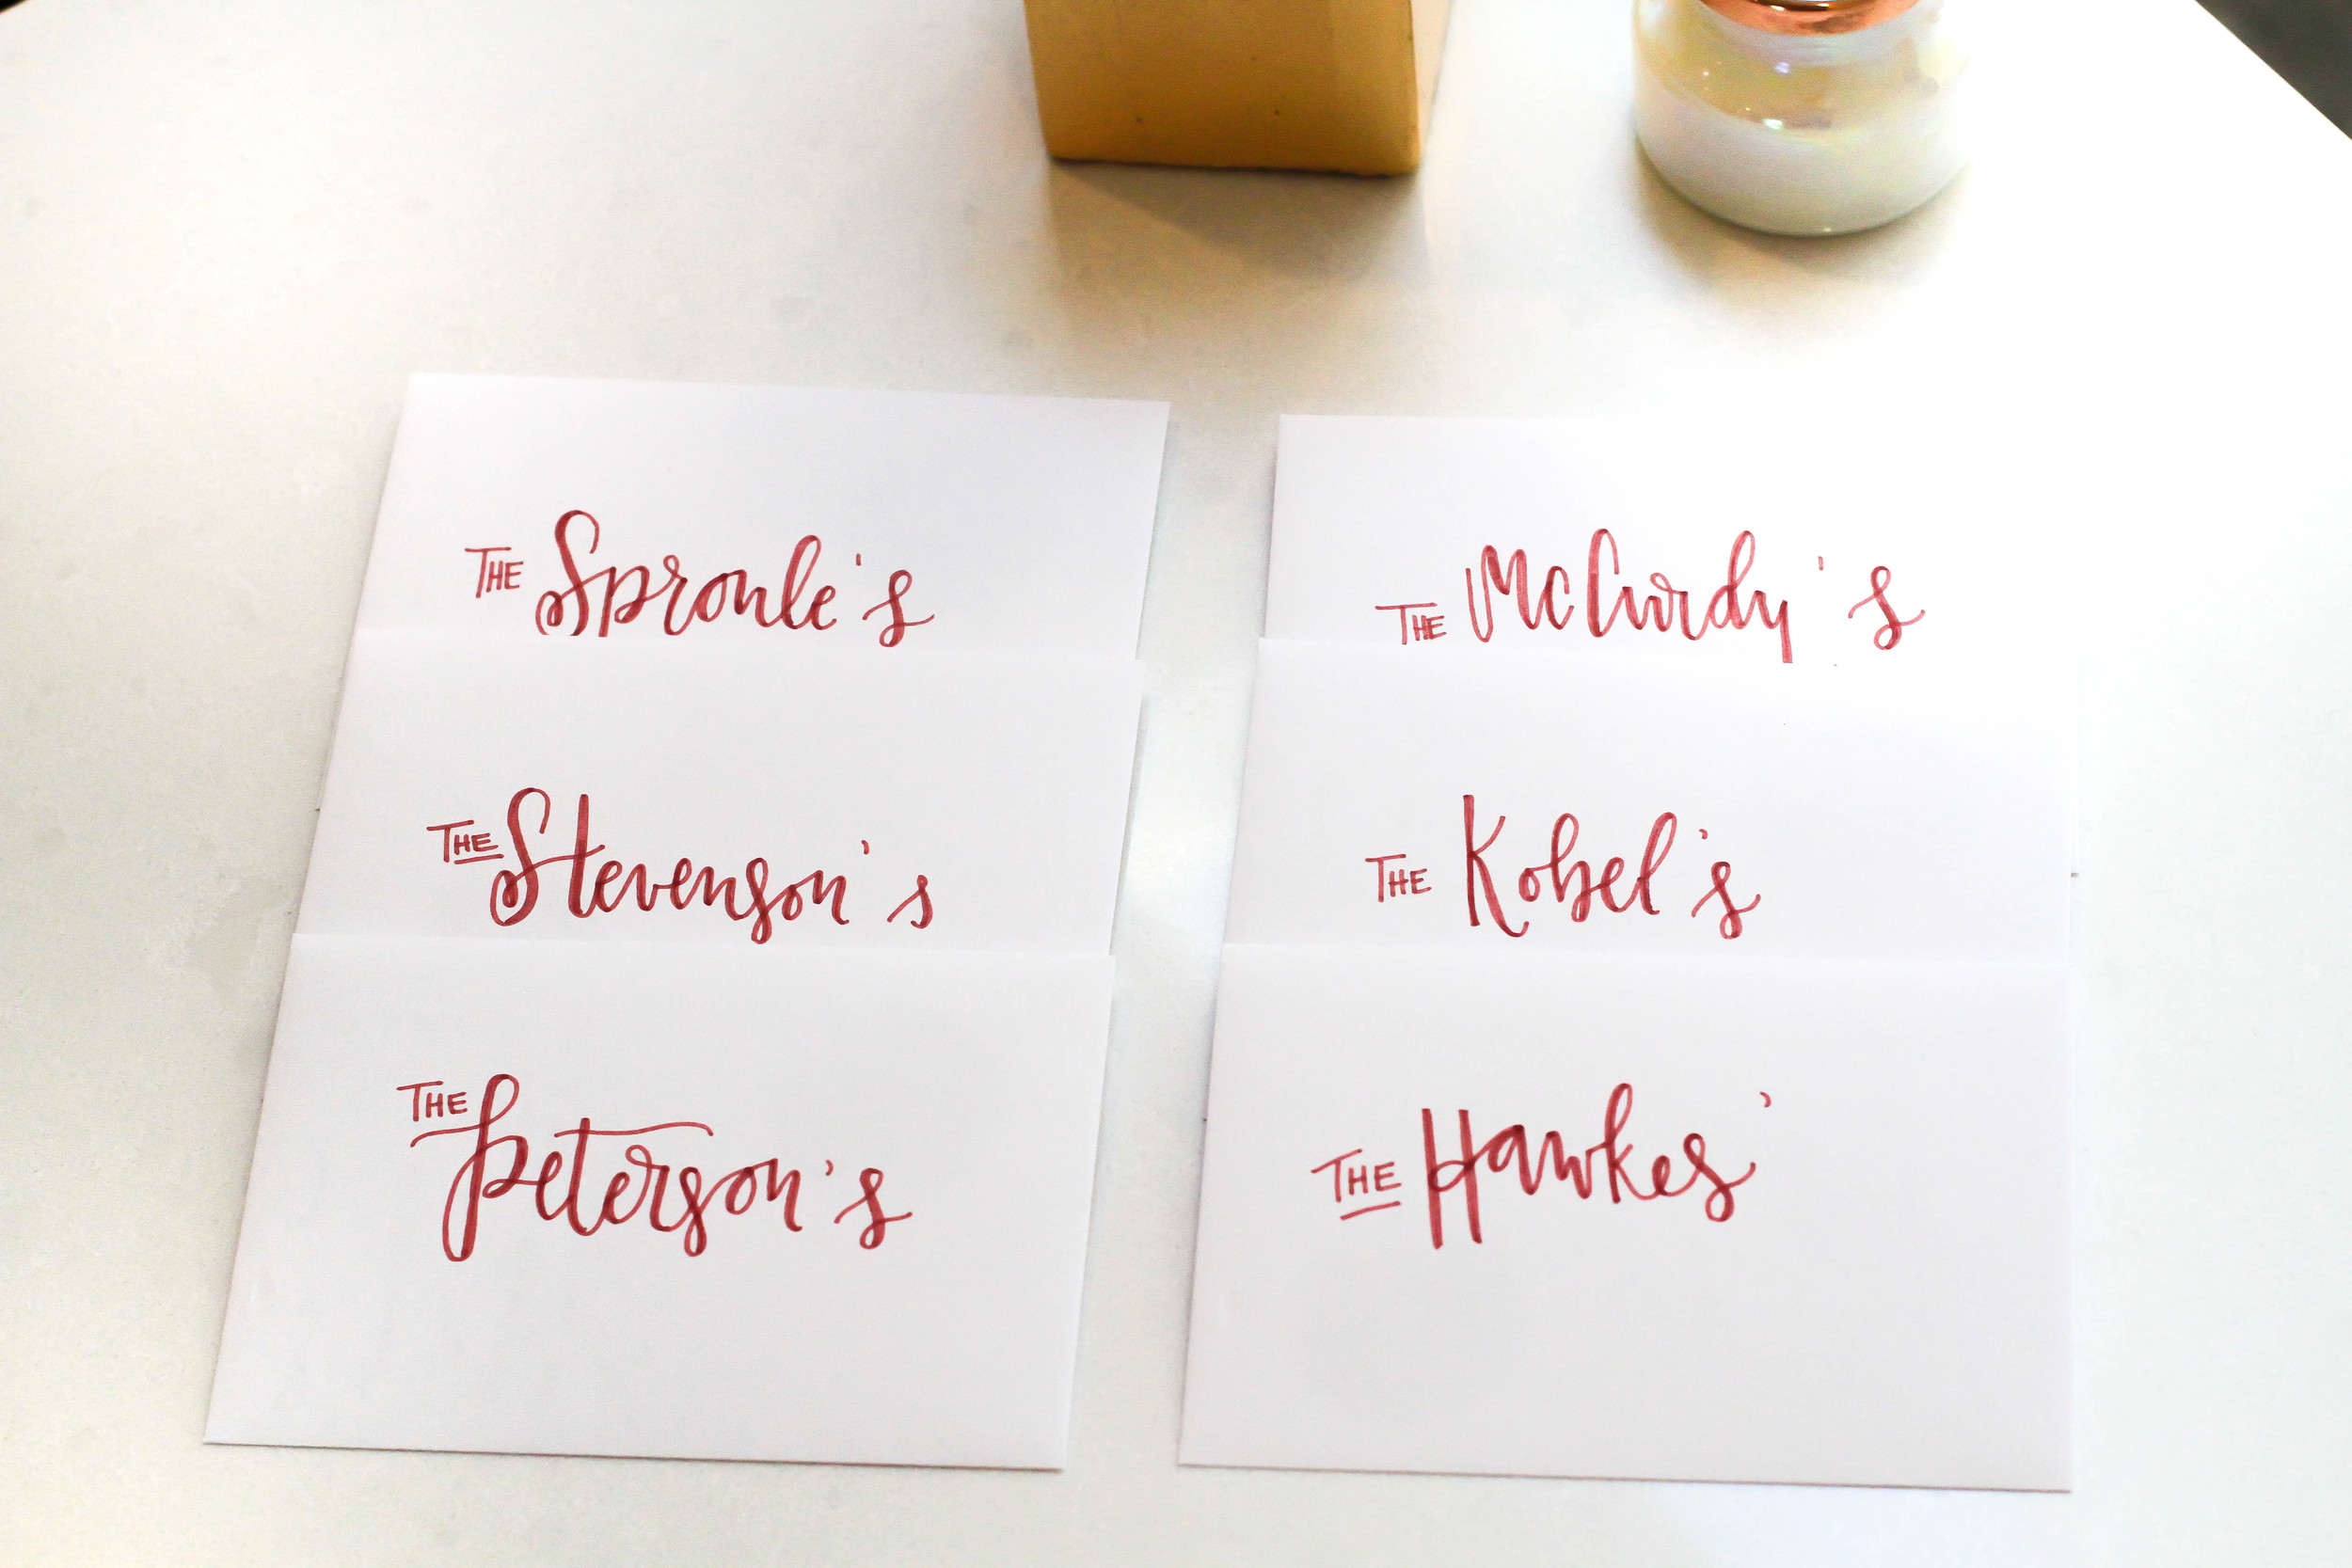 THE Sproule's
THE Stevenson's
THE Peterson's
THE McCurdy's
THE Kobel's
THE Hawkes'